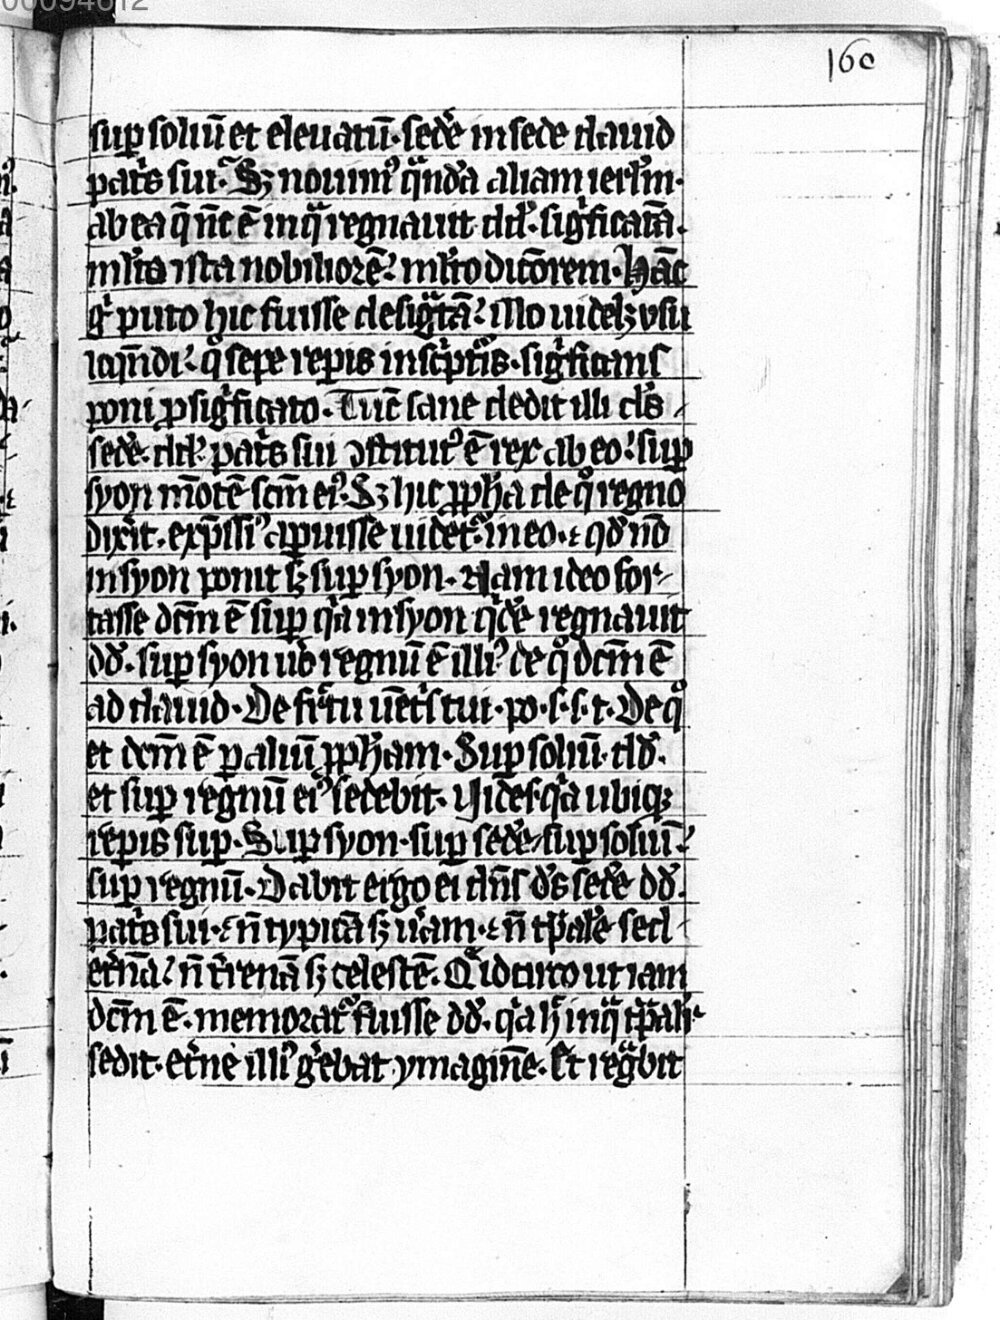 00094612
160
sup̱ soliū et eleuatū· sed̓e in sede dauid
pat̓s sui· S; nouim᷒ q̄nd̓a aliam ierl̓m·
ab ea q̄ nc̄ ē in qͣ regnauit dd̓· sig̓ficatā·
ml̓to ista nobiliorē? ml̓to ditōrem· Hāc
g̓ puto hic fuisse desigͣtā? illo uidelꝫ vsu
loq̄ndi? q̓ sepe rep̱is in sc̓pt̓is· sig̓ficans
poni ꝓ sig̓ficato· Tūc sane dedit illi d̓s
sed̓e· dd̓· pat̓s sui ꝯstitut᷒ ē rex ab eo? sup̱
syon mōtē sc̄m ei᷒· S; hic ꝓpħa de qͦ regno
dix̓it· exp̄ssi᷒ ap̱uisse uidet᷑ in eo· ⁊ qd̓ nō
in syon ponit sꝫ sup̱ syon· Nam ideo for-
tasse dc̄m ē sup̱ q̓a in syon q̓d̓e regnauit
dd̓· sup̱ syon ub̓ regnū ē illi᷒ de qͦ dc̄m ē
ad dauid· De fr̓tu uēt̓s tui· po· s· s· t· De qͦ
et dc̄m ē p̱ aliū ꝓpħam· Sup̱ soliū· dd̓·
et sup̱ regnū ei᷒ sedebit· Uides q̓a ubiqꝫ
rep̱is sup̱· Sup̱ syon· sup̱ sed̓e· sup̱ soliū?
sup̱ regnū· Dabit ergo ei dn̄s d̓s sed̓e dd̓·
pat̓s sui· ⁊ n̄ typicā sꝫ u̓am· ⁊ n̄ tp̄al̓e sed
et̓nā? n̄ t̓renā sꝫ celestē· Q̓idcirco ut iam
dc̄m ē· memorat᷑ fuisse dd̓· q̓a h̓ in qͣ tp̄al̓r
sedit· et̓ne illi᷒ g̓ebat ymaginē· Et regͣbit